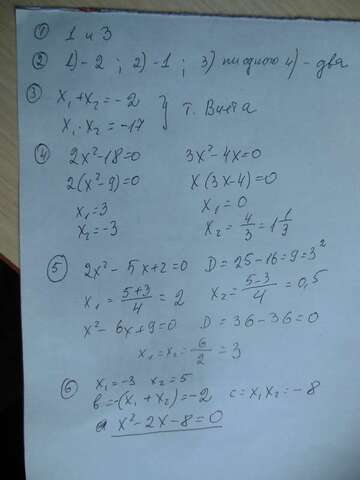 ① 1 и 3
② 1) - 2 ; 2) - 1 ; 3) ни одного 4) - два
③ x₁ + x₂ = -2
x₁ · x₂ = -17 } т. Виета
④ 2x² - 18 = 0 3x² - 4x = 0
2(x² - 9) = 0 x(3x - 4) = 0
x₁ = 3 x₁ = 0
x₂ = -3 x₂ = 4/3 = 1 1/3
⑤ 2x² - 5x + 2 = 0 D = 25 - 16 = 9 = 3²
x₁ = (5+3)/4 = 2 x₂ = (5-3)/4 = 0,5
x² - 6x + 9 = 0 D = 36 - 36 = 0
x₁ = x₂ = 6/2 = 3
⑥ x₁ = -3 x₂ = 5
b = -(x₁ + x₂) = -2 c = x₁x₂ = -8
x² - 2x - 8 = 0